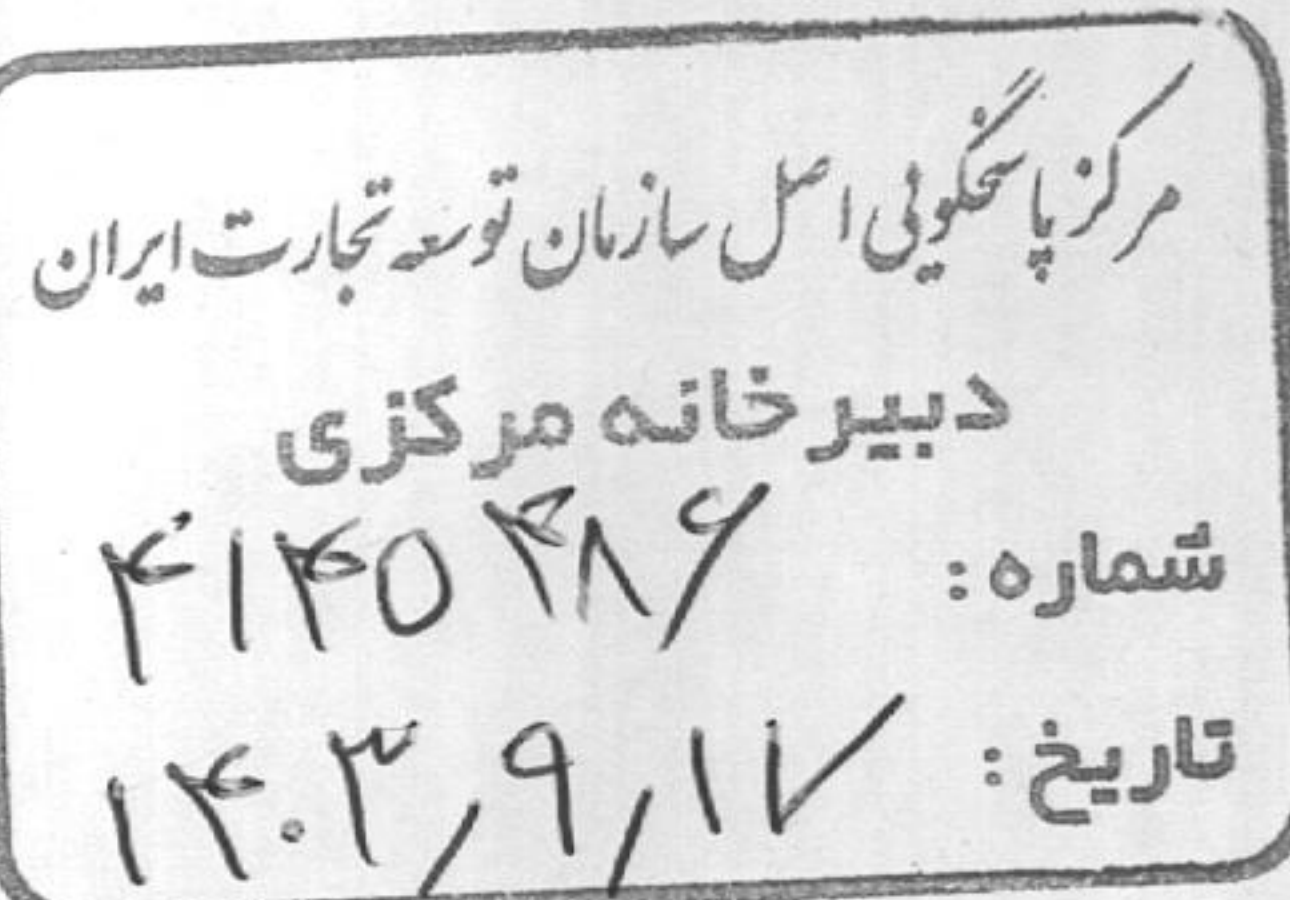 مرکز پاسخگویی اصل سازمان توسعه تجارت ایران
دبیرخانه مرکزی
شماره: ۴۱۴۵۴۸۶
تاریخ: ۱۴۰۳,۹,۱۷